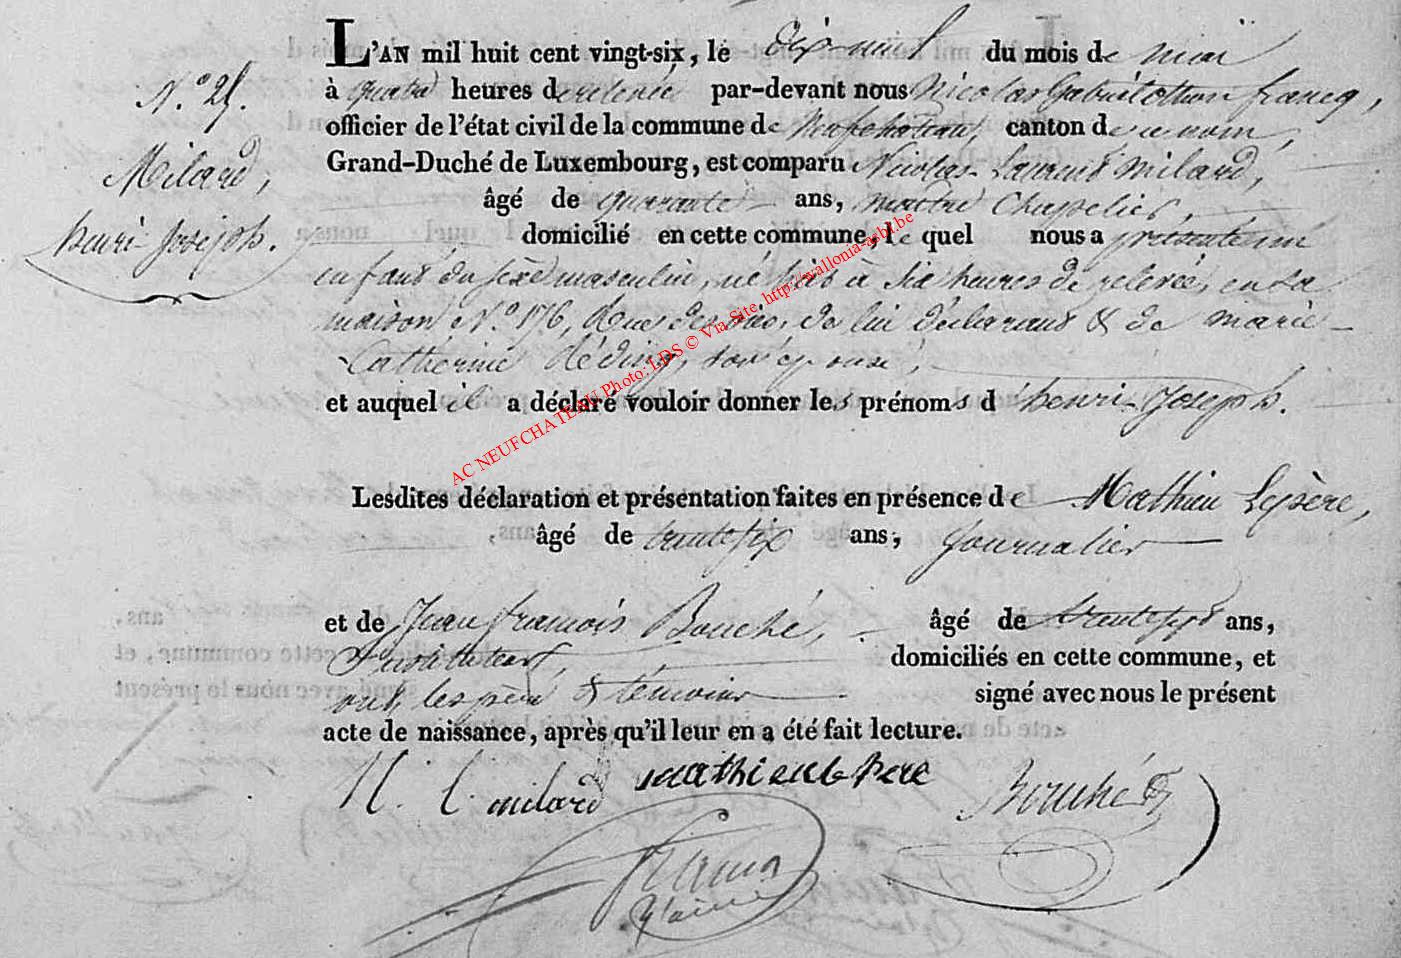 L'AN mil huit cent vingt-six, le dix neuf du mois de mai
à quatre heures de relevée par-devant nous Nicolas Gabriel francq,
officier de l'état civil de la commune de Neufchateau, canton de ce nom,
Grand-Duché de Luxembourg, est comparu Nicolas Laurent Milard,
âgé de quarante ans, maitre Chapelier,
domicilié en cette commune, le quel nous a présenté un
enfant du sexe masculin, né à six heures de relevée, en sa
maison N.° 176, Rue de lui déclarant & de marie
Catherine son épouse,
et auquel il a déclaré vouloir donner les prénoms d'henri-Joseph.
Lesdites déclaration et présentation faites en présence de Mathieu Lepère,
âgé de trente six ans, Journalier
et de Jean françois Bouché, âgé de trente sept ans,
Instituteur, domiciliés en cette commune, et
ont les père & témoins signé avec nous le présent
acte de naissance, après qu'il leur en a été fait lecture.
N. L. milard mathieu le pere Bouché
N.°
Milard,
henri Joseph.
AC NEUFCHATEAU Photo: LDS © Via Site, http://wallonia-asbl.be